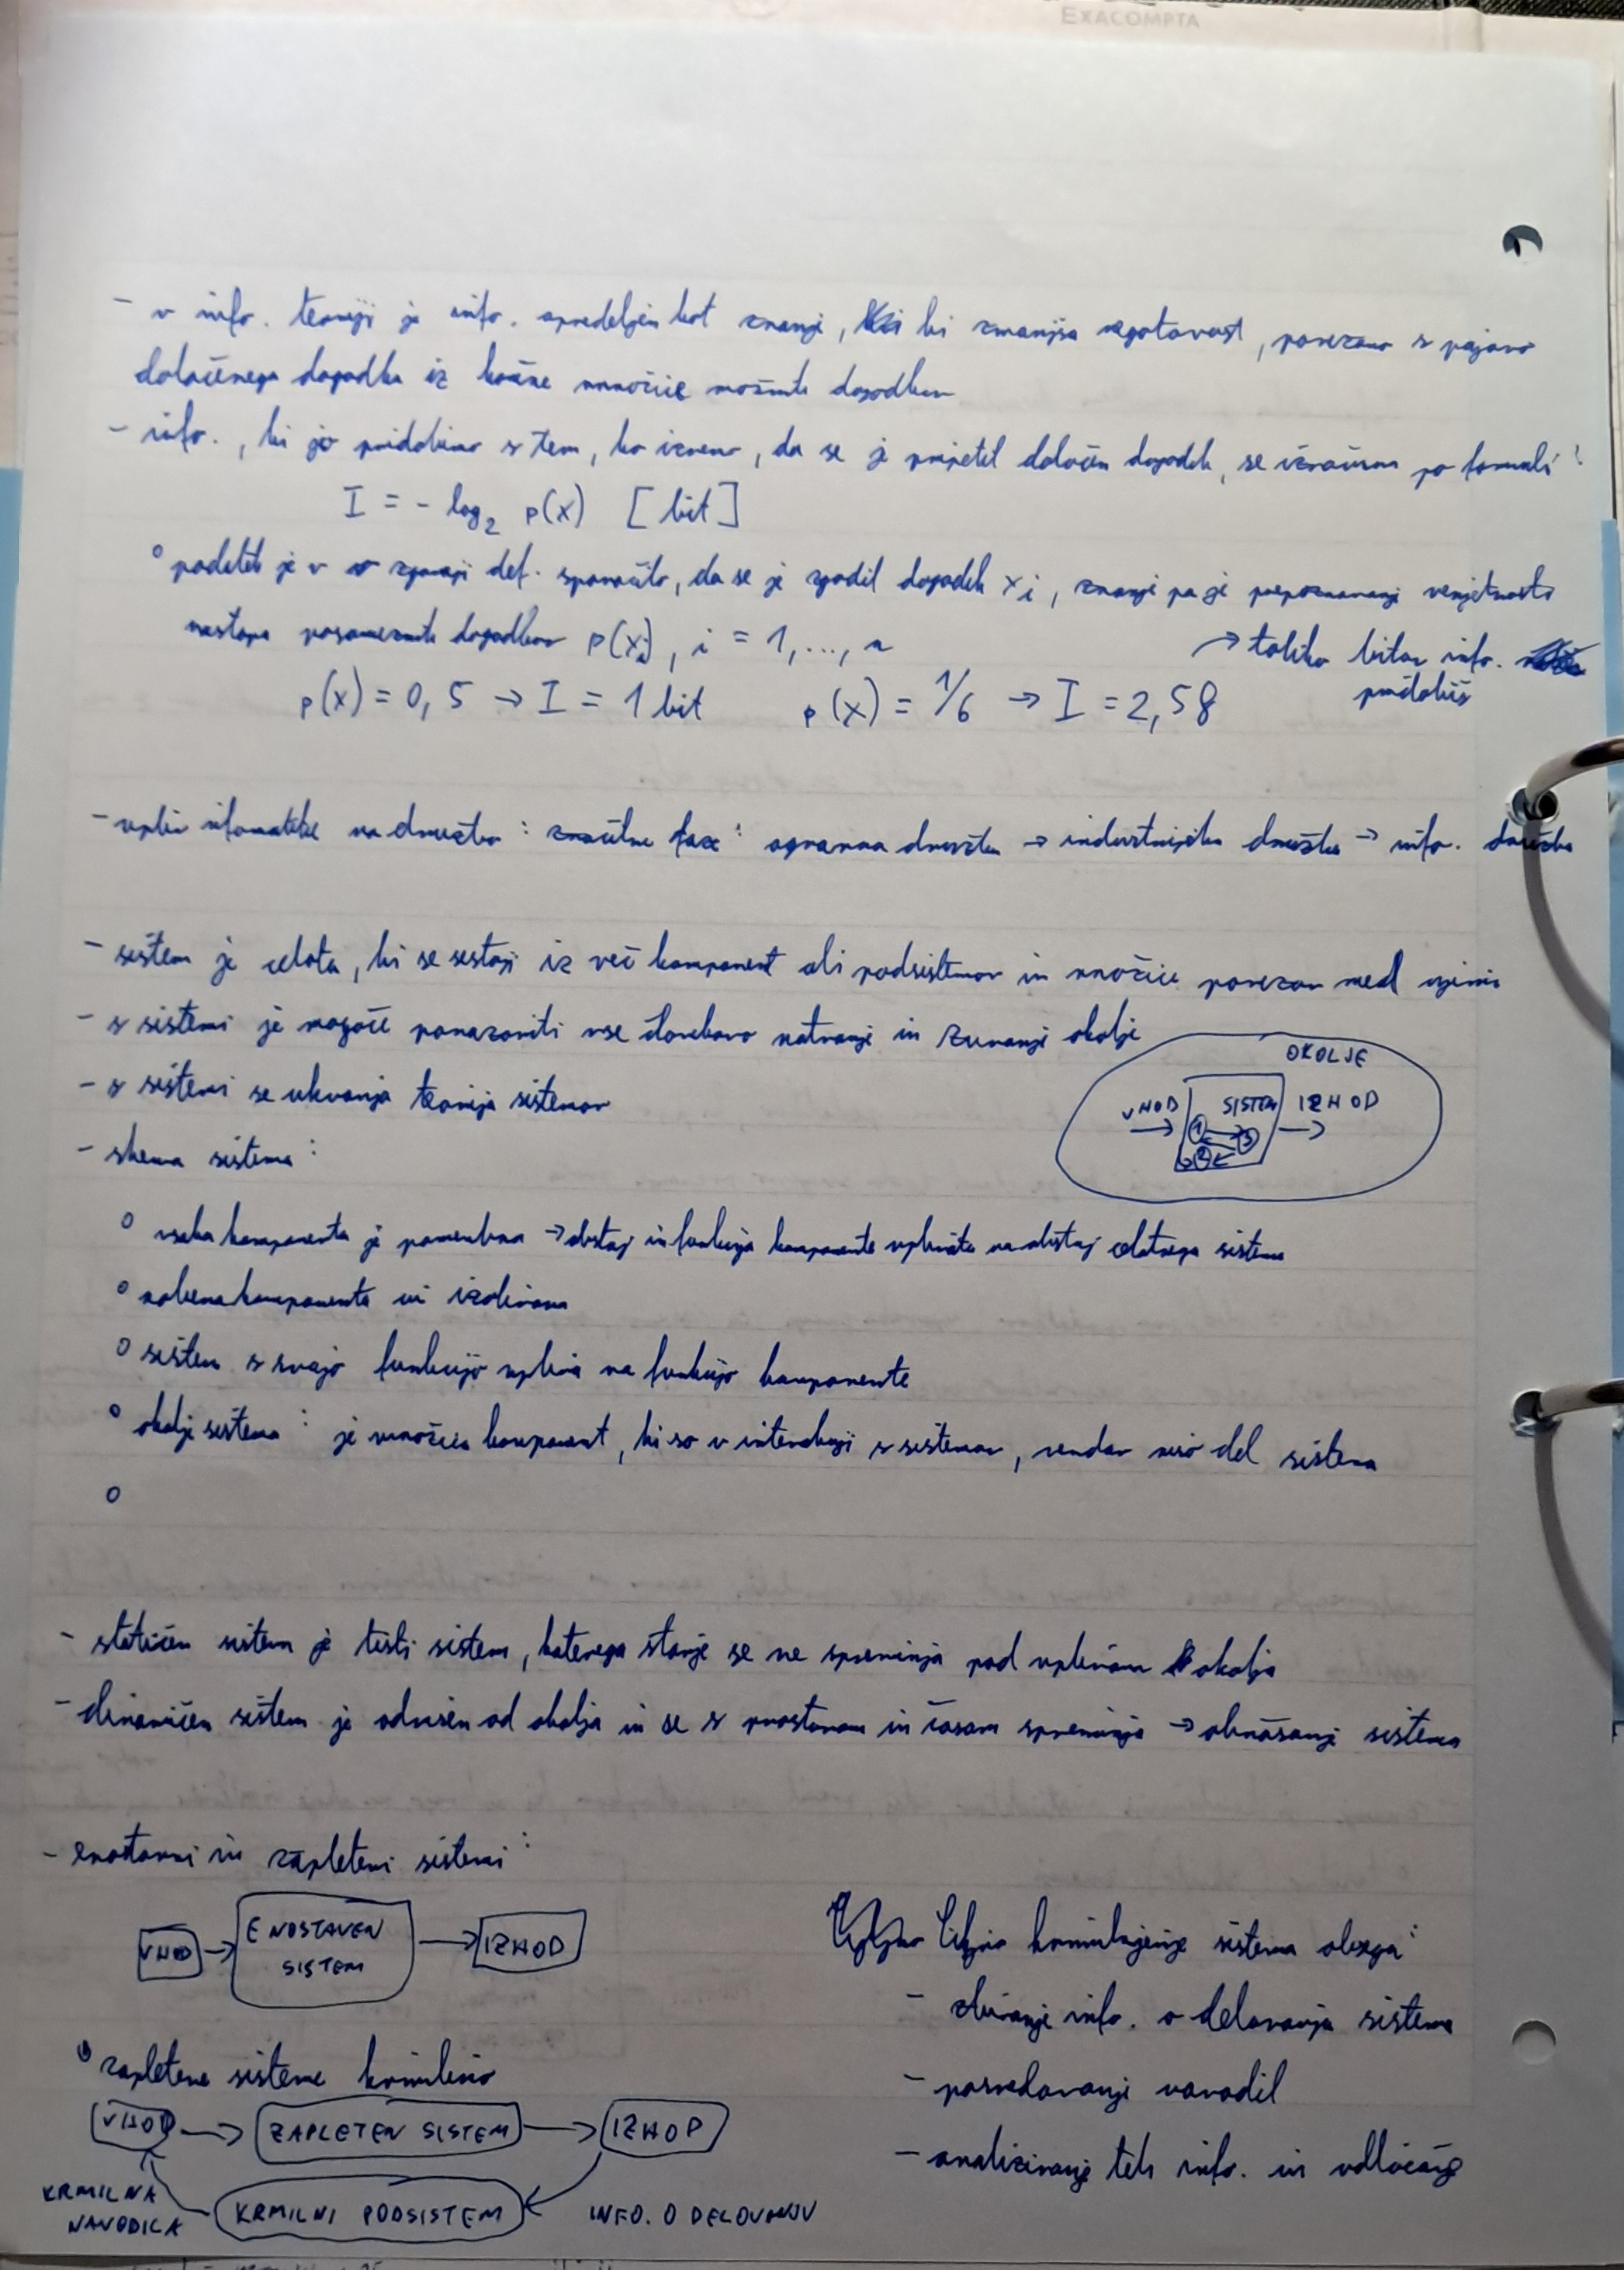 EXACOMPTA
- v info. teoriji je info. opredeljen kot znanje, ki bi zmanjša negotovost, povezano s pojavo
določenega dogodka iz končne množice možnih dogodkov
- info., ki jo pridobimo s tem, ko izvemo, da se je pripetil določen dogodek, se izračuna po formuli:
I = - log₂ p(x) [bit]
° podatek je v zgornji def. sporočilo, da se je zgodil dogodek xi, znanje pa je prepoznavanje verjetnosti
nastopa posameznih dogodkov p(xi), i = 1, ..., n
→ toliko bitov info.
pridobiš
p(x) = 0,5 → I = 1 bit p(x) = 1/6 → I = 2,58
- vpliv informatike na družbo: značilne faze: agrarna družba → industrijska družba → info. družba
- sistem je celota, ki se sestoji iz več komponent ali podsistemov in množice povezav med njimi
- s sistemi je mogoče ponazoriti vse človekovo notranje in zunanje okolje
- s sistemi se ukvarja teorija sistemov
- shema sistema:
OKOLJE
VHOD SISTEM IZHOD
1 3
2
° vsaka komponenta je pomembna → obstoj in funkcija komponente vplivata na obstoj celotnega sistema
° nobena komponenta ni izolirana
° sistem s svojo funkcijo vpliva na funkcijo komponente
° okolje sistema: je množica komponent, ki so v interakciji s sistemom, vendar niso del sistema
°
- statičen sistem je tisti sistem, katerega stanje se ne spreminja pod vplivom okolja
- dinamičen sistem je odvisen od okolja in se s prostorom in časom spreminja → obnašanje sistema
- enostavni in zapleteni sistemi:
VHOD → ENOSTAVEN
SISTEM → IZHOD
° zapletene sisteme krmilimo
VHOD → ZAPLETEN SISTEM → IZHOD
KRMILNA
NAVODILA
KRMILNI PODSISTEM
INFO. O DELOVANJU
krmiljenje sistema obsega:
- zbiranje info. o delovanju sistema
- posredovanje navodil
- analiziranje teh info. in odločanje